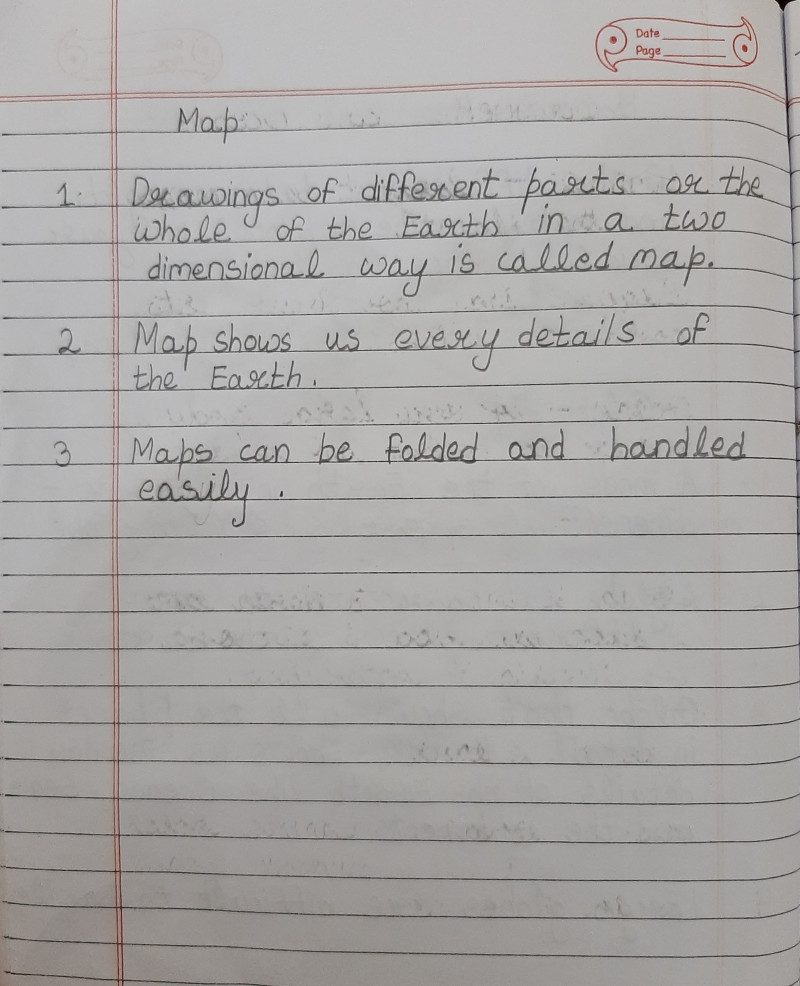 Date
Page
Map
1. Drawings of different parts or the
whole of the Earth in a two
dimensional way is called map.
2 Map shows us every details of
the Earth.
3 Maps can be folded and handled
easily.